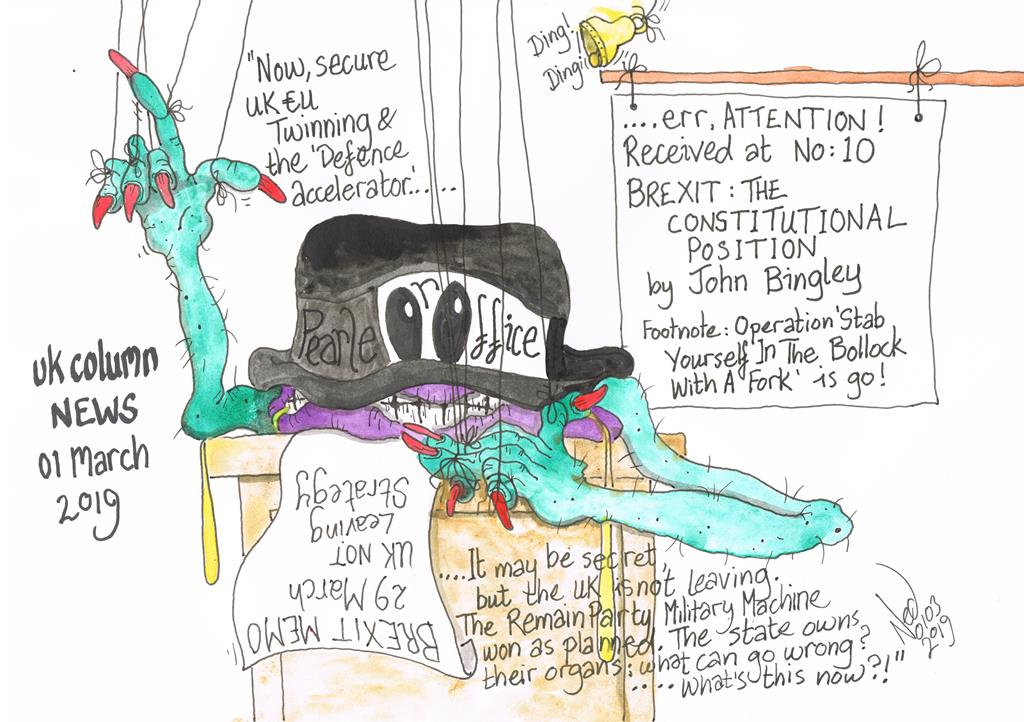 Ding!
Ding!
"Now, secure
UK€U
Twinning &
the 'Defence
accelerator'.....
....err, ATTENTION!
Received at No:10
BREXIT: THE
CONSTITUTIONAL
POSITION
by John Bingley
Footnote: Operation 'Stab
Yourself In The Bollock
With A 'Fork' is go!
Pearle or office
UK column
NEWS
01 March
2019
BREXIT MEMO
29 March
UK NOT
Leaving
Strategy
....It may be secret,
but the UK is not leaving.
The Remain Party Military Machine
won as planned. The state owns
their organs; what can go wrong?
.....what's this now?!"
03
2019